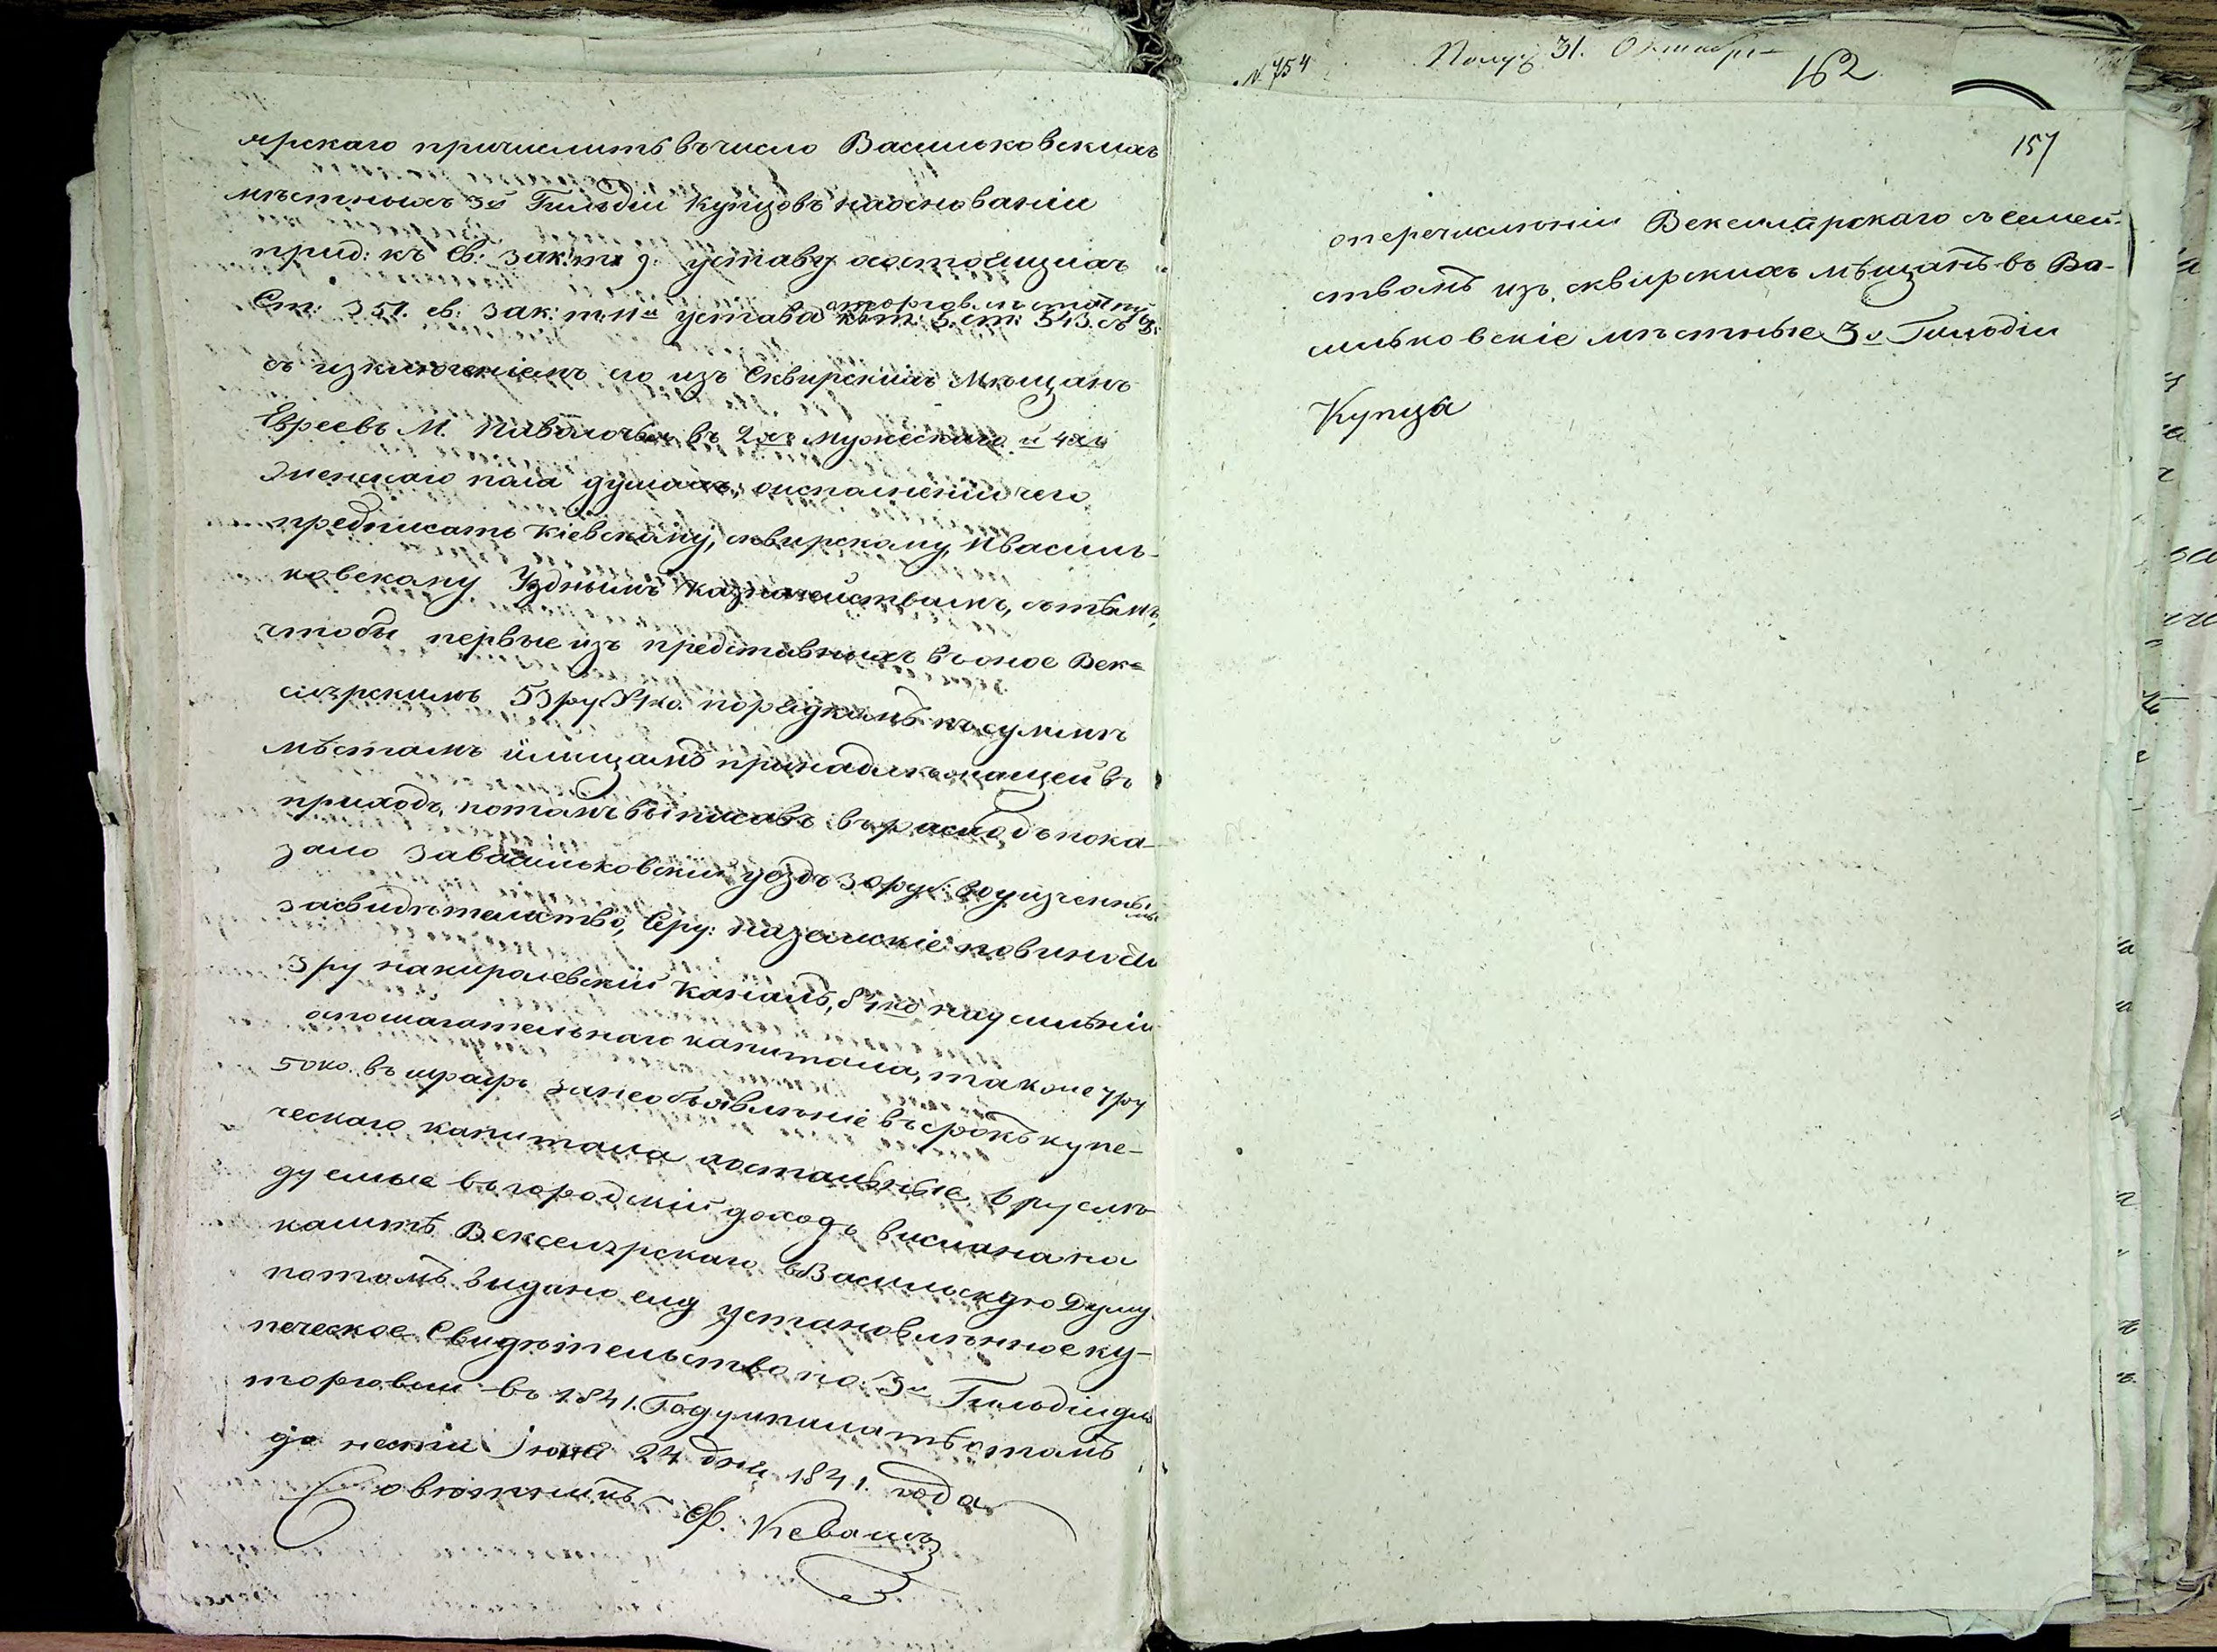 ярскаго причислить въ число Васильковскихъ
мѣстныхъ 3й Гильдіи купцовъ на основаніи
прид: къ Св: зак: т: 9. уставу о состояніяхъ
о торгов.
Ст: 351. св: зак: т: 11й устава ст: 543. съ
съ изключеніемъ его изъ Сквирскихъ Мѣщанъ
Евреевъ М. Паволочи въ 2хъ мужескаго и 4хъ
женскаго пола душахъ, о исполненіи чего
предписать Кіевскому, Сквирскому, и Василь-
ковскому Уѣзднымъ Казначействамъ, съ тѣмъ,
чтобы первые изъ представленныхъ въ оное Век-
слярскимъ 53 ру 84 ко. порядкомъ къ суммѣ
мѣстамъ и лицамъ принадлежащей въ
приходъ, потомъ выписавъ въ расходъ пока-
зало за Васильковскій уѣздъ 30 руб:
за свидѣтельство, 6 ру: на земскіе повинности
3 ру на киралевскій Каналъ, 84 ко на усиленіи
вспомогательнаго капитала, также 7 ру
50 ко. въ штрафъ за необъявленіе въ срокъ купе-
ческаго капитала, остальные 6 ру слѣ-
дуемые въ городскій доходъ
Векселярскаго въ Васильскую Думу
потомъ выдано ему установленное ку-
печеское Свидѣтельство по 3й Гильдіи для
торговли въ 1841. Году и прислать о томъ
донесеніи Іюня 24 дня 1841 года
Совѣтникъ Ф.
№ 754
Получ 31. Октября
162
157
о перечисленіи Векслярскаго съ семей-
ствомъ изъ сквирскихъ мѣщанъ въ Ва-
сильковскіе мѣстные 3й Гильдіи
Купца